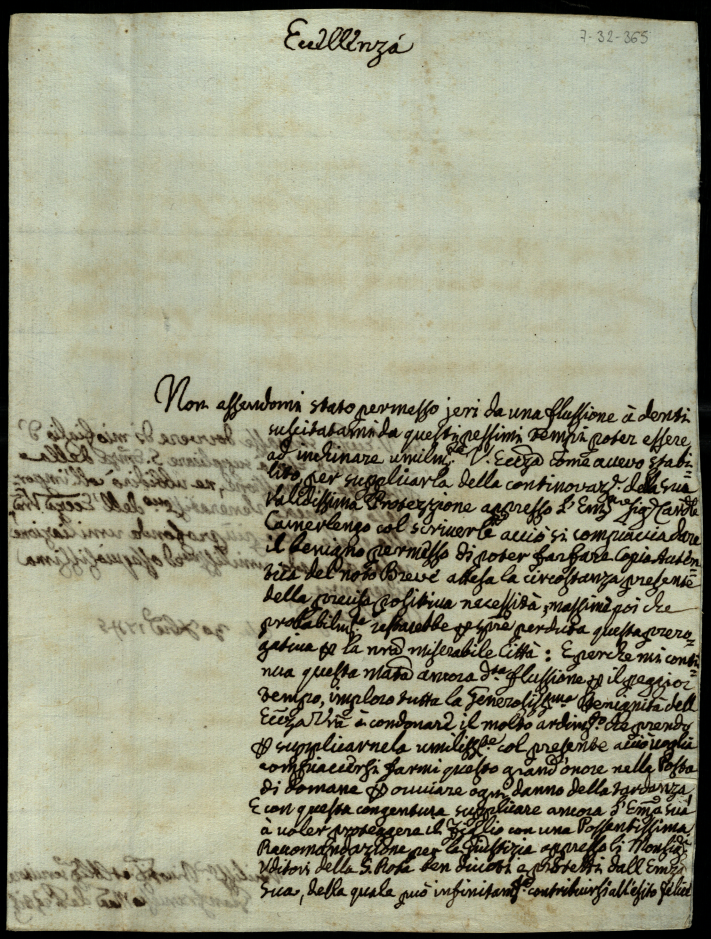 Eccellenza
7-32-365
Non essendomi stato permesso jeri da una flussione à denti
suscitatami da questi pessimi tempi poter essere
ad inchinare umilm.te V. Ecc.za come avevo stabi-
lito, per supplicarla della continovaz.e della sua
validissima Protezzione appresso l'Em.o Sig.r Card.le
Camerlengo col scriverle acciò si compiaccia dare
il benigno permesso di poter far fare Copia Auten-
tica del noto Breve attesa la circostanza presente
della precisa positiva necessità, massime poi che
probabilm.te resterebbe p sempre perduta questa prero-
gativa p la nr̃a miserabile Città: E perche mi conti-
nua questa mattina ancora d.ta flussione p il peggior
tempo, imploro tutta la Generosiss.ma Benignità dell'
Ecc.za Vr̃a à condonare il molto ardim.to che prendo
p supplicarnela umiliss.te col presente acciò voglia
compiacersi farmi questo grand'onore nella Posta
di domane p ovviare ogni danno della tardanza,
E con questa congentura supplicare ancora l'Em.za sua
à voler proteggere il Figlio con una Possentissima
Raccomandazione per la Giustizia appresso li Monsig.ri
Uditori della S. Rota ben divoti e protetti dall'Em.za
sua, della quale può infinitam.te contribuirsi all'esito felice